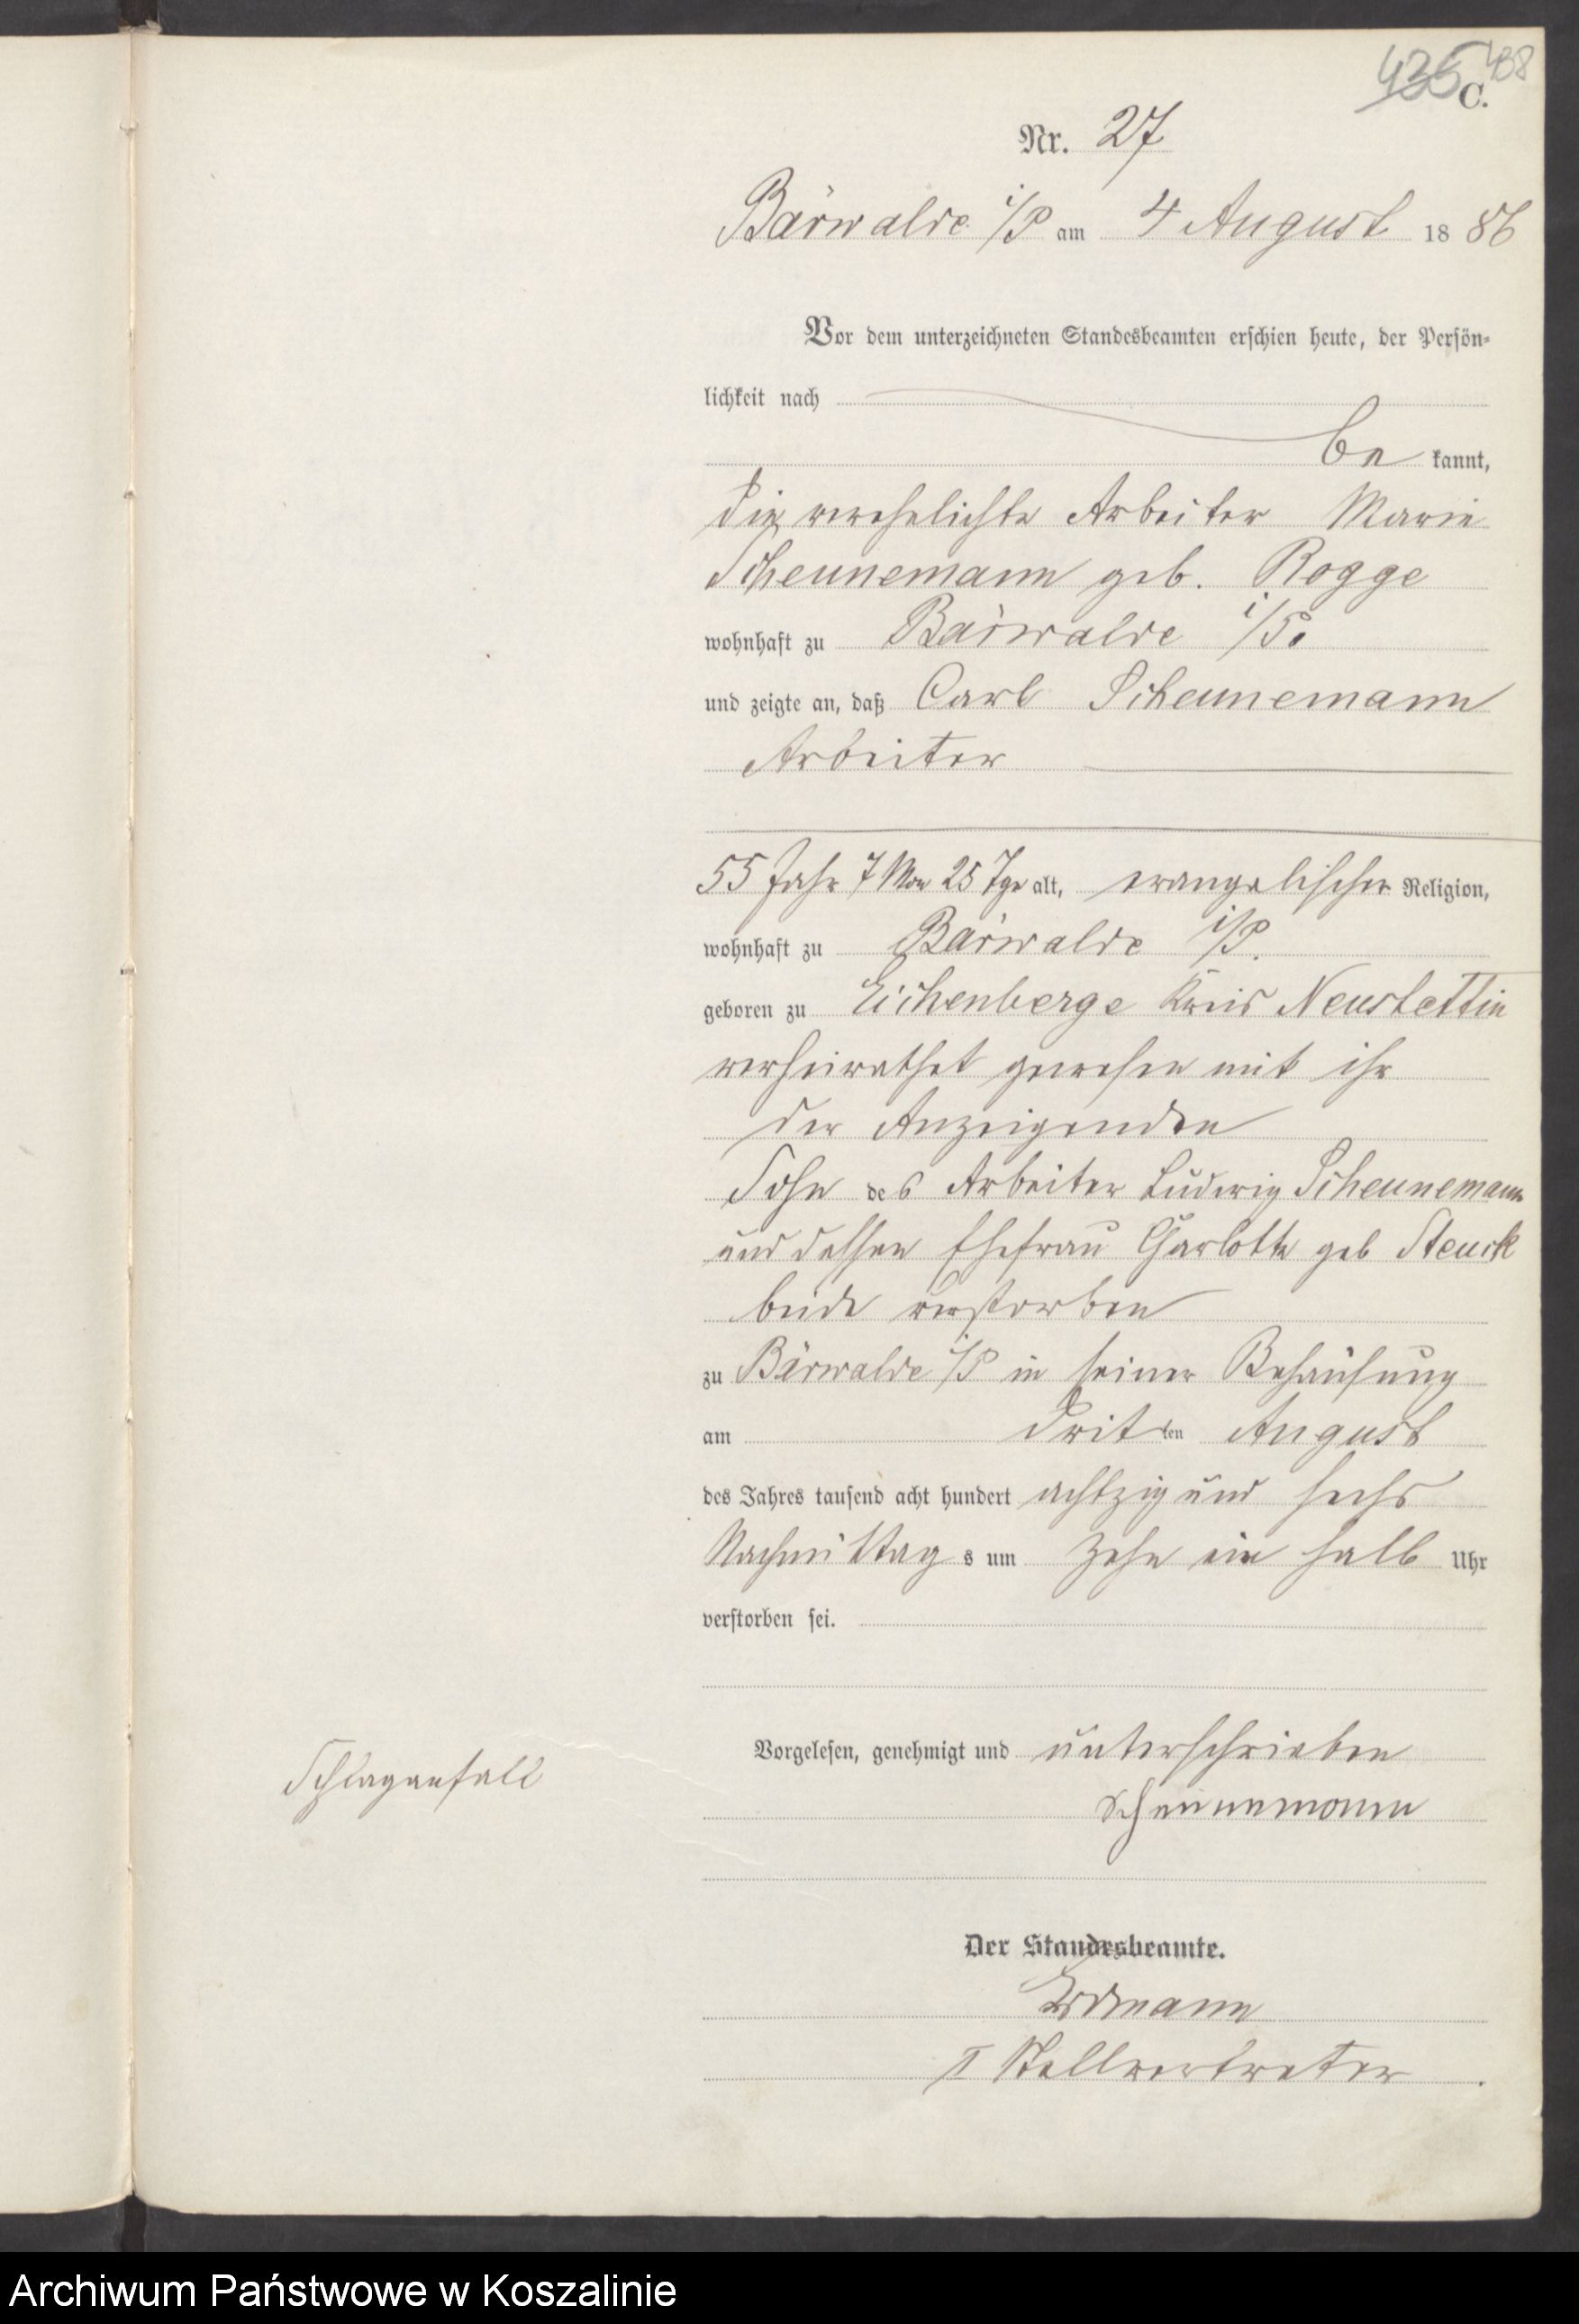 435 438
C.
Nr. 27
Bärwalde i/P am 4 August 1886
Vor dem unterzeichneten Standesbeamten erschien heute, der Persön-
lichkeit nach
be kannt,
die verehelichte Arbeiter Marie
Scheunemann geb. Rogge
wohnhaft zu Bärwalde i/P.
und zeigte an, daß Carl Scheunemann
Arbeiter
55 Jahr 7 Mon 25 Tge alt, evangelischer Religion,
wohnhaft zu Bärwalde i/P.
geboren zu Eichenberge Kreis Neustettin
verheirathet gewesen mit ihr
der Anzeigenden
Sohn des Arbeiter Ludwig Scheunemann
und dessen Ehefrau Charlotte geb Steuck
beide verstorben
zu Bärwalde i/P in seiner Behausung
am dritten August
des Jahres tausend acht hundert achtzig und sechs
Nachmittags um zehn ein halb Uhr
verstorben sei.
Vorgelesen, genehmigt und unterschrieben
Schlaganfall
Scheunemann
Der Standesbeamte.
Erdmann
I Stellvertreter.
Archiwum Państwowe w Koszalinie